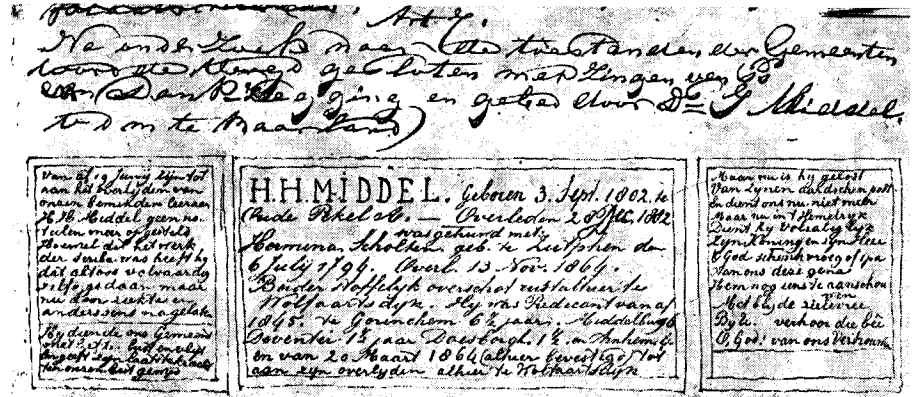 Art 7.
Na onderzoek naar de toestanden der Gemeenten
word de Kerkd gesloten met Zingen van Gz
en Dankzegging en gebed door Ds G Middel.
te Baarland)
Van af 19 Junij zijn tot
aan het overlijden van
onzen beminden Leeraar
H. H. Middel geen no-
tulen meer opgesteld
Hoewel dit het werk
der scriba was heeft hij
dat altoos volvaardig
willig gedaan maar
nu door ziekte en
anderszins nagelaten
Hij diende ons Gemeent
H.H. MIDDEL. Geboren 3. Sept. 1802. te
Oude Pekel A. — Overleden 28 Dec. 1882
was gehuwd met:
Hermina Scholten geb. te Zutphen den
6 July 1794. Overl. 13 Nov. 1864.
Beider Stoffelijk overschot rust alhier te
Wolfaartsdijk. Hij was Predicant vanaf
1845. te Gorinchem 6½ jaar. Middelburg
Deventer 1½ jaar Doesborgh. 1½. en Arnhem
en van 20 Maart 1864 (alhier bevestigd) tot
aan zijn overlijden alhier te Wolfaartsdijk
Maar nu is hij gelost
Van zijnen aardschen post
En dient ons nu niet meer
Maar nu in't Hemelryk
Dient hij volzalig lyk
Zyn Koning en zyn Heer
O God schenk vroeg of spa
Van ons deze gena
Hem nog eens te aanschouwen
Met bei de zielen
By U. verhoor die beê
O, God! van ons Vertrouwen